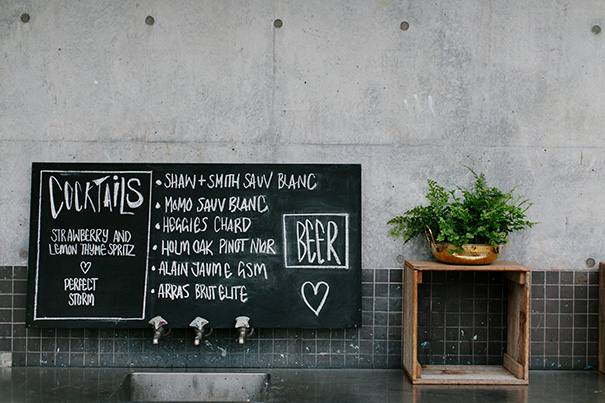 COCKTAILS
STRAWBERRY AND
LEMON THYME SPRITZ
♡
PERFECT
STORM
• SHAW + SMITH SAUV BLANC
• MOMO SAUV BLANC
• HEGGIES CHARD
• HOLM OAK PINOT NOIR
• ALAIN JAUME GSM
• ARRAS BRUT ELITE
BEER
♡